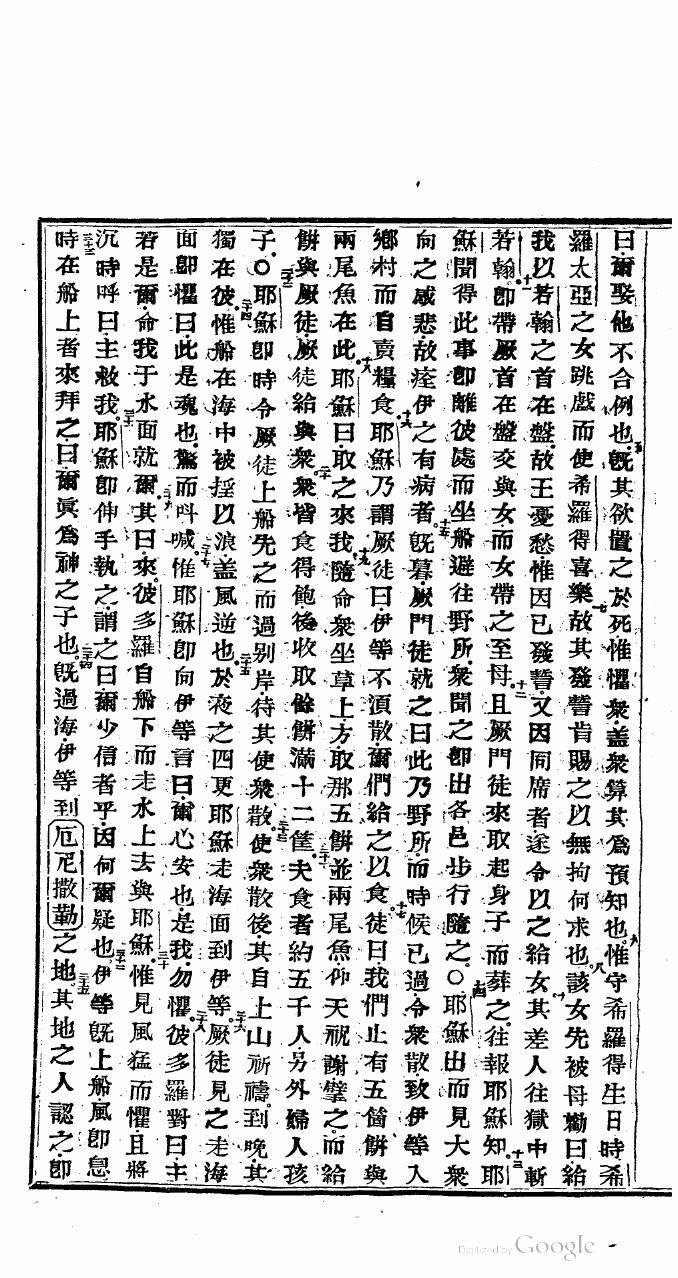 曰爾娶他不合例也五旣其欲置之於死惟懼衆盖衆算其爲預知也六惟守希羅得生日時希
羅太亞之女跳戲而使希羅得喜樂七故其發誓肯賜之以無拘何求也八該女先被母勸曰給
我以若翰之首在盤故王憂愁惟因已發誓又因同席者遂令以之給女其差人往獄中斬
若翰十一卽帶厥首在盤交與女而女帶之至母十二且厥門徒來取起身子而葬之往報耶穌知十三耶
穌聞得此事卽離彼處而坐船避往野所衆聞之卽出各邑步行隨之〇十四耶穌出而見大衆
向之感悲故痊伊之有病者十五旣暮厥門徒就之曰此乃野所而時候已過令衆散致伊等入
鄉村而自賣糧食十六耶穌乃謂厥徒曰伊等不湏散爾們給之以食十七徒曰我們止有五箇餅與
兩尾魚在此十八耶穌曰取之來我十九隨命衆坐草上方取那五餅並兩尾魚仰天祝謝擘之而給
餅與厥徒厥徒給與衆二十衆皆食得飽後收取餘餅滿十二筐二十一夫食者約五千人另外婦人孩
子〇二十二耶穌卽時令厥徒上船先之而過別岸待其使衆散二十三使衆散後其自上山祈禱到晚其
獨在彼二十四惟船在海中被摇以浪盖風逆也二十五於夜之四更耶穌走海面到伊等二十六厥徒見之走海
面卽懼曰此是魂也驚而呌喊二十七惟耶穌卽向伊等言曰爾心安也是我勿懼二十八彼多羅對曰主
若是爾命我于水面就爾二十九其曰來彼多羅自船下而走水上去與耶穌三十惟見風猛而懼且將
沉時呼曰主救我三十一耶穌卽伸手執之謂之曰爾少信者乎因何爾疑也三十二伊等旣上船風卽息
三十三時在船上者來拜之曰爾眞爲神之子也三十四旣過海伊等到厄尼撒勒之地三十五其地之人認之卽
Digitized by Google